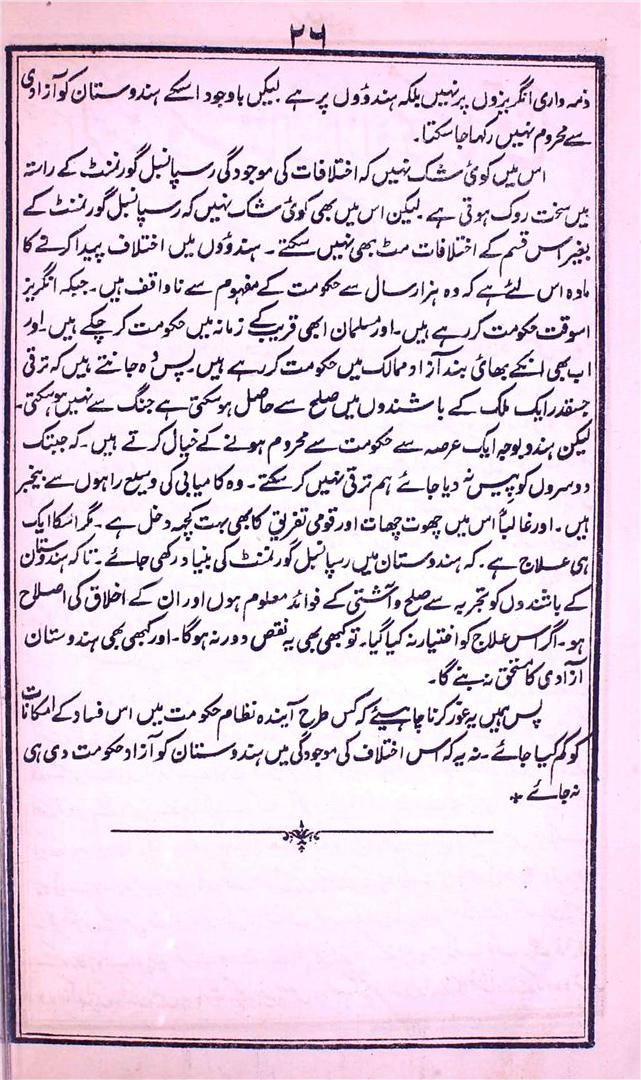 ۲۶
ذمہ واری انگریزوں پر نہیں بلکہ ہندوؤں پر ہے لیکن باوجود اسکے ہندوستان کو آزادی
سے محروم نہیں رکھا جا سکتا۔
اس میں کوئی شک نہیں کہ اختلافات کی موجودگی رسپانسبل گورنمنٹ کے راستہ
میں سخت روک ہوتی ہے لیکن اس میں بھی کوئی شک نہیں کہ رسپانسبل گورنمنٹ کے
بغیر اس قسم کے اختلافات مٹ بھی نہیں سکتے۔ ہندوؤں میں اختلاف پیدا کرنے کا
مادہ اس لئے ہے کہ وہ ہزار سال سے حکومت کے مفہوم سے ناواقف ہیں۔ جبکہ انگریز
اسوقت حکومت کر رہے ہیں۔ اور مسلمان ابھی قریب کے زمانہ میں حکومت کر چکے ہیں۔ اور
اب بھی انکے بھائی بند آزاد ممالک میں حکومت کر رہے ہیں۔ پس وہ جانتے ہیں کہ ترقی
جسقدر ایک ملک کے باشندوں میں صلح سے حاصل ہو سکتی ہے جنگ سے نہیں ہو سکتی۔
لیکن ہندو بوجہ ایک عرصہ سے حکومت سے محروم ہونے کے خیال کرتے ہیں۔ کہ جبتک
دوسروں کو پیس نہ دیا جائے ہم ترقی نہیں کر سکتے۔ وہ کامیابی کی وسیع راہوں سے بیخبر
ہیں۔ اور غالباً اس میں چھوت چھات اور قومی تفریق کا بھی بہت کچھ دخل ہے۔ مگر اسکا ایک
ہی علاج ہے۔ کہ ہندوستان میں رسپانسبل گورنمنٹ کی بنیاد رکھی جائے۔ تاکہ ہندوستان
کے باشندوں کو تجربہ سے صلح و آشتی کے فوائد معلوم ہوں اور ان کے اخلاق کی اصلاح
ہو۔ اگر اس علاج کو اختیار نہ کیا گیا۔ تو کبھی بھی یہ نقص دور نہ ہوگا۔ اور کبھی بھی ہندوستان
آزادی کا مستحق نہ بنے گا۔
پس ہمیں یہ غور کرنا چاہیئے کہ کس طرح آیندہ نظام حکومت میں اس فساد کے امکانات
کو کم کیا جائے۔ نہ یہ کہ اس اختلاف کی موجودگی میں ہندوستان کو آزاد حکومت دی ہی
نہ جائے ٭